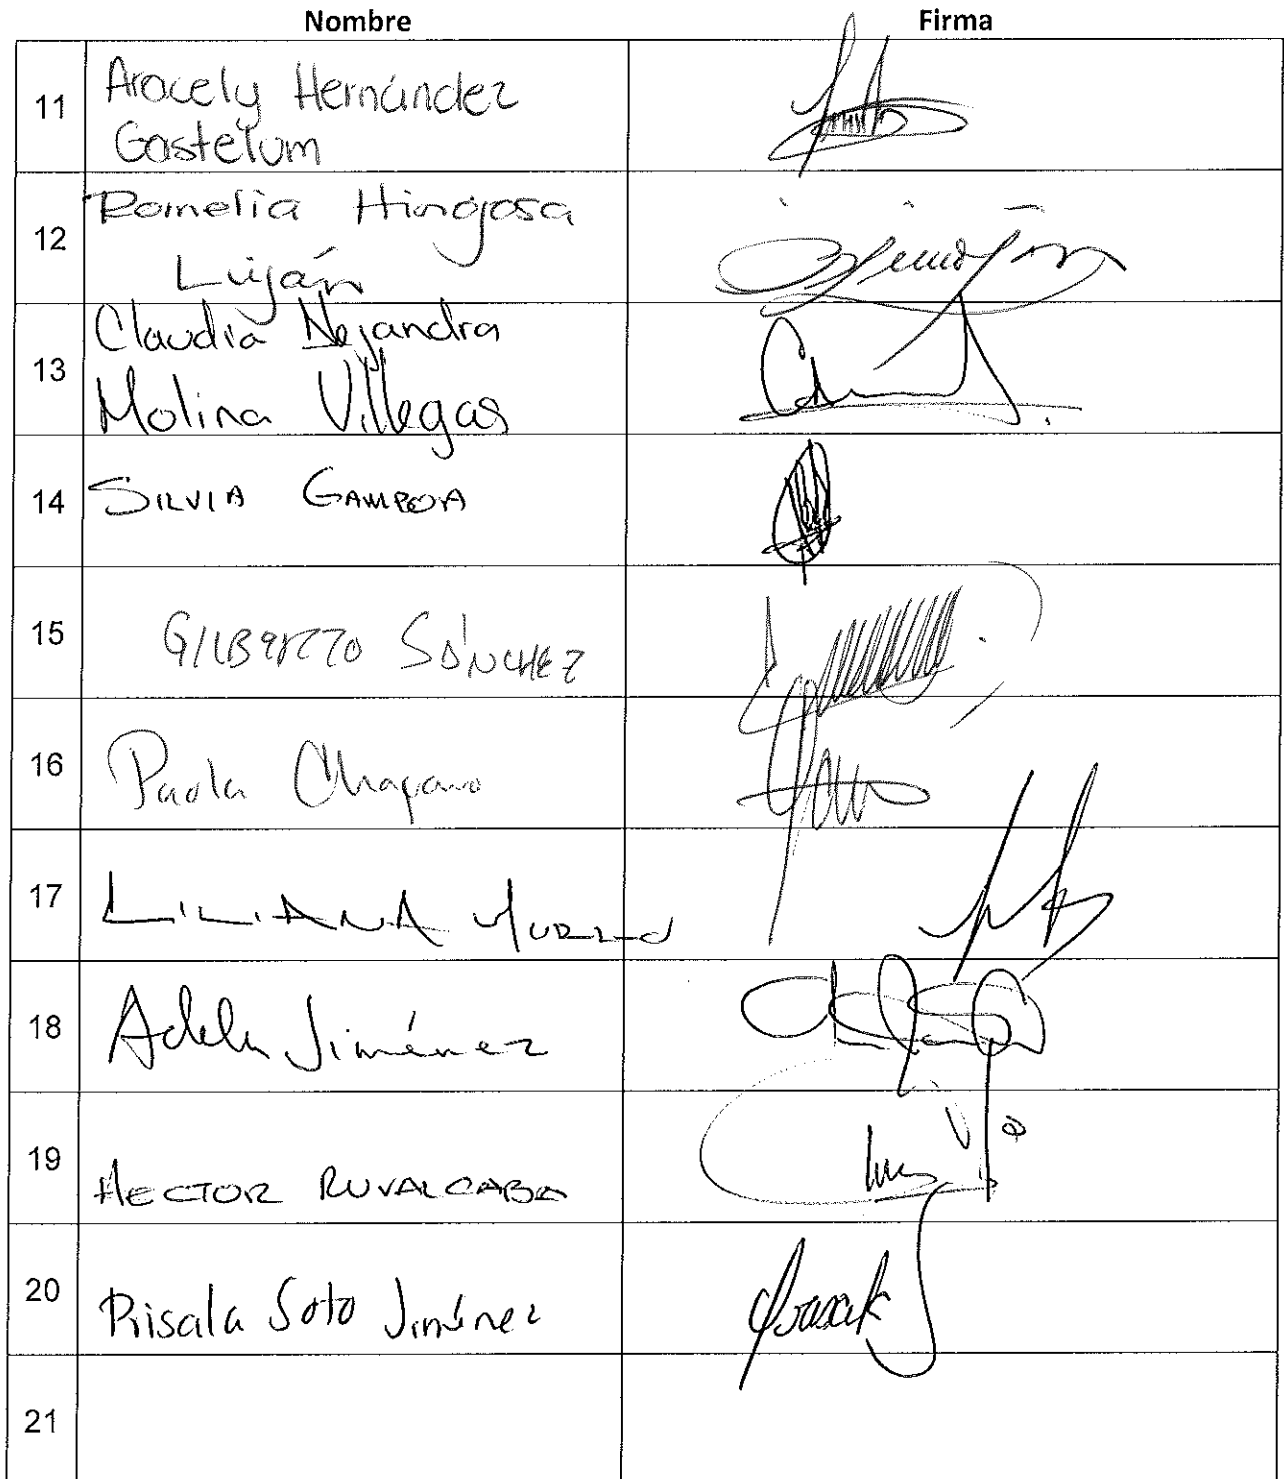 Nombre Firma
11 Aracely Hernández
Gastelum
12 Romelia Hinojosa
Luján
13 Claudia Alejandra
Molina Villegas
14 SILVIA GAMBOA
15 GILBERTO SÁNCHEZ
16 Paola Chaparro
17 LILIANA MURILLO
18 Adela Jiménez
19 HECTOR RUVALCABA
20 Soto Jiménez
21